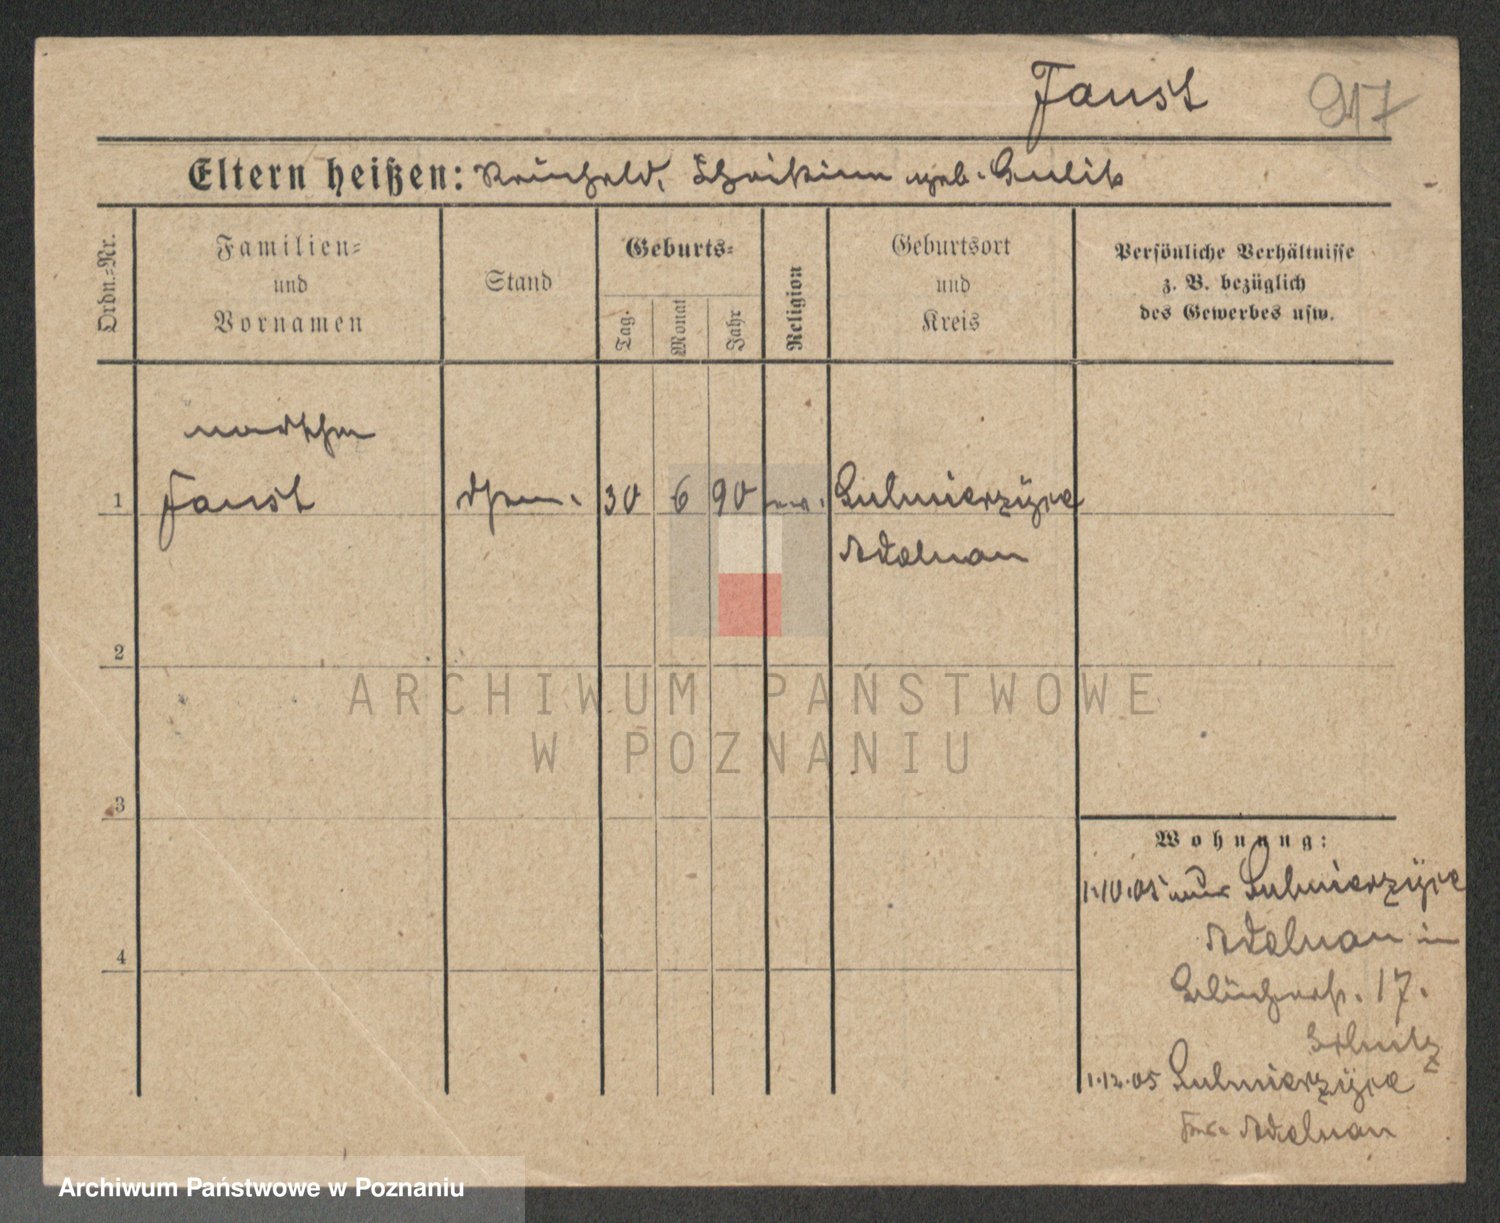 Faust
917
Eltern heißen: Reinhold, Christine geb. Gulitz
Ordn.=Nr.
Familien=
und
Vornamen
Stand
Geburts=
Tag.
Monat
Jahr
Religion
Geburtsort
und
Kreis
Persönliche Verhältnisse
z. B. bezüglich
des Gewerbes usw.
1
Faust
30 6 90 ev.
Sulmierzyce
Adelnau
2
3
4
ARCHIWUM PAŃSTWOWE
W POZNANIU
Wohnung:
1.10.05 aus Sulmierzyce
Adelnau in
17.
1.12.05 Sulmierzyce
Adelnau
Archiwum Państwowe w Poznaniu